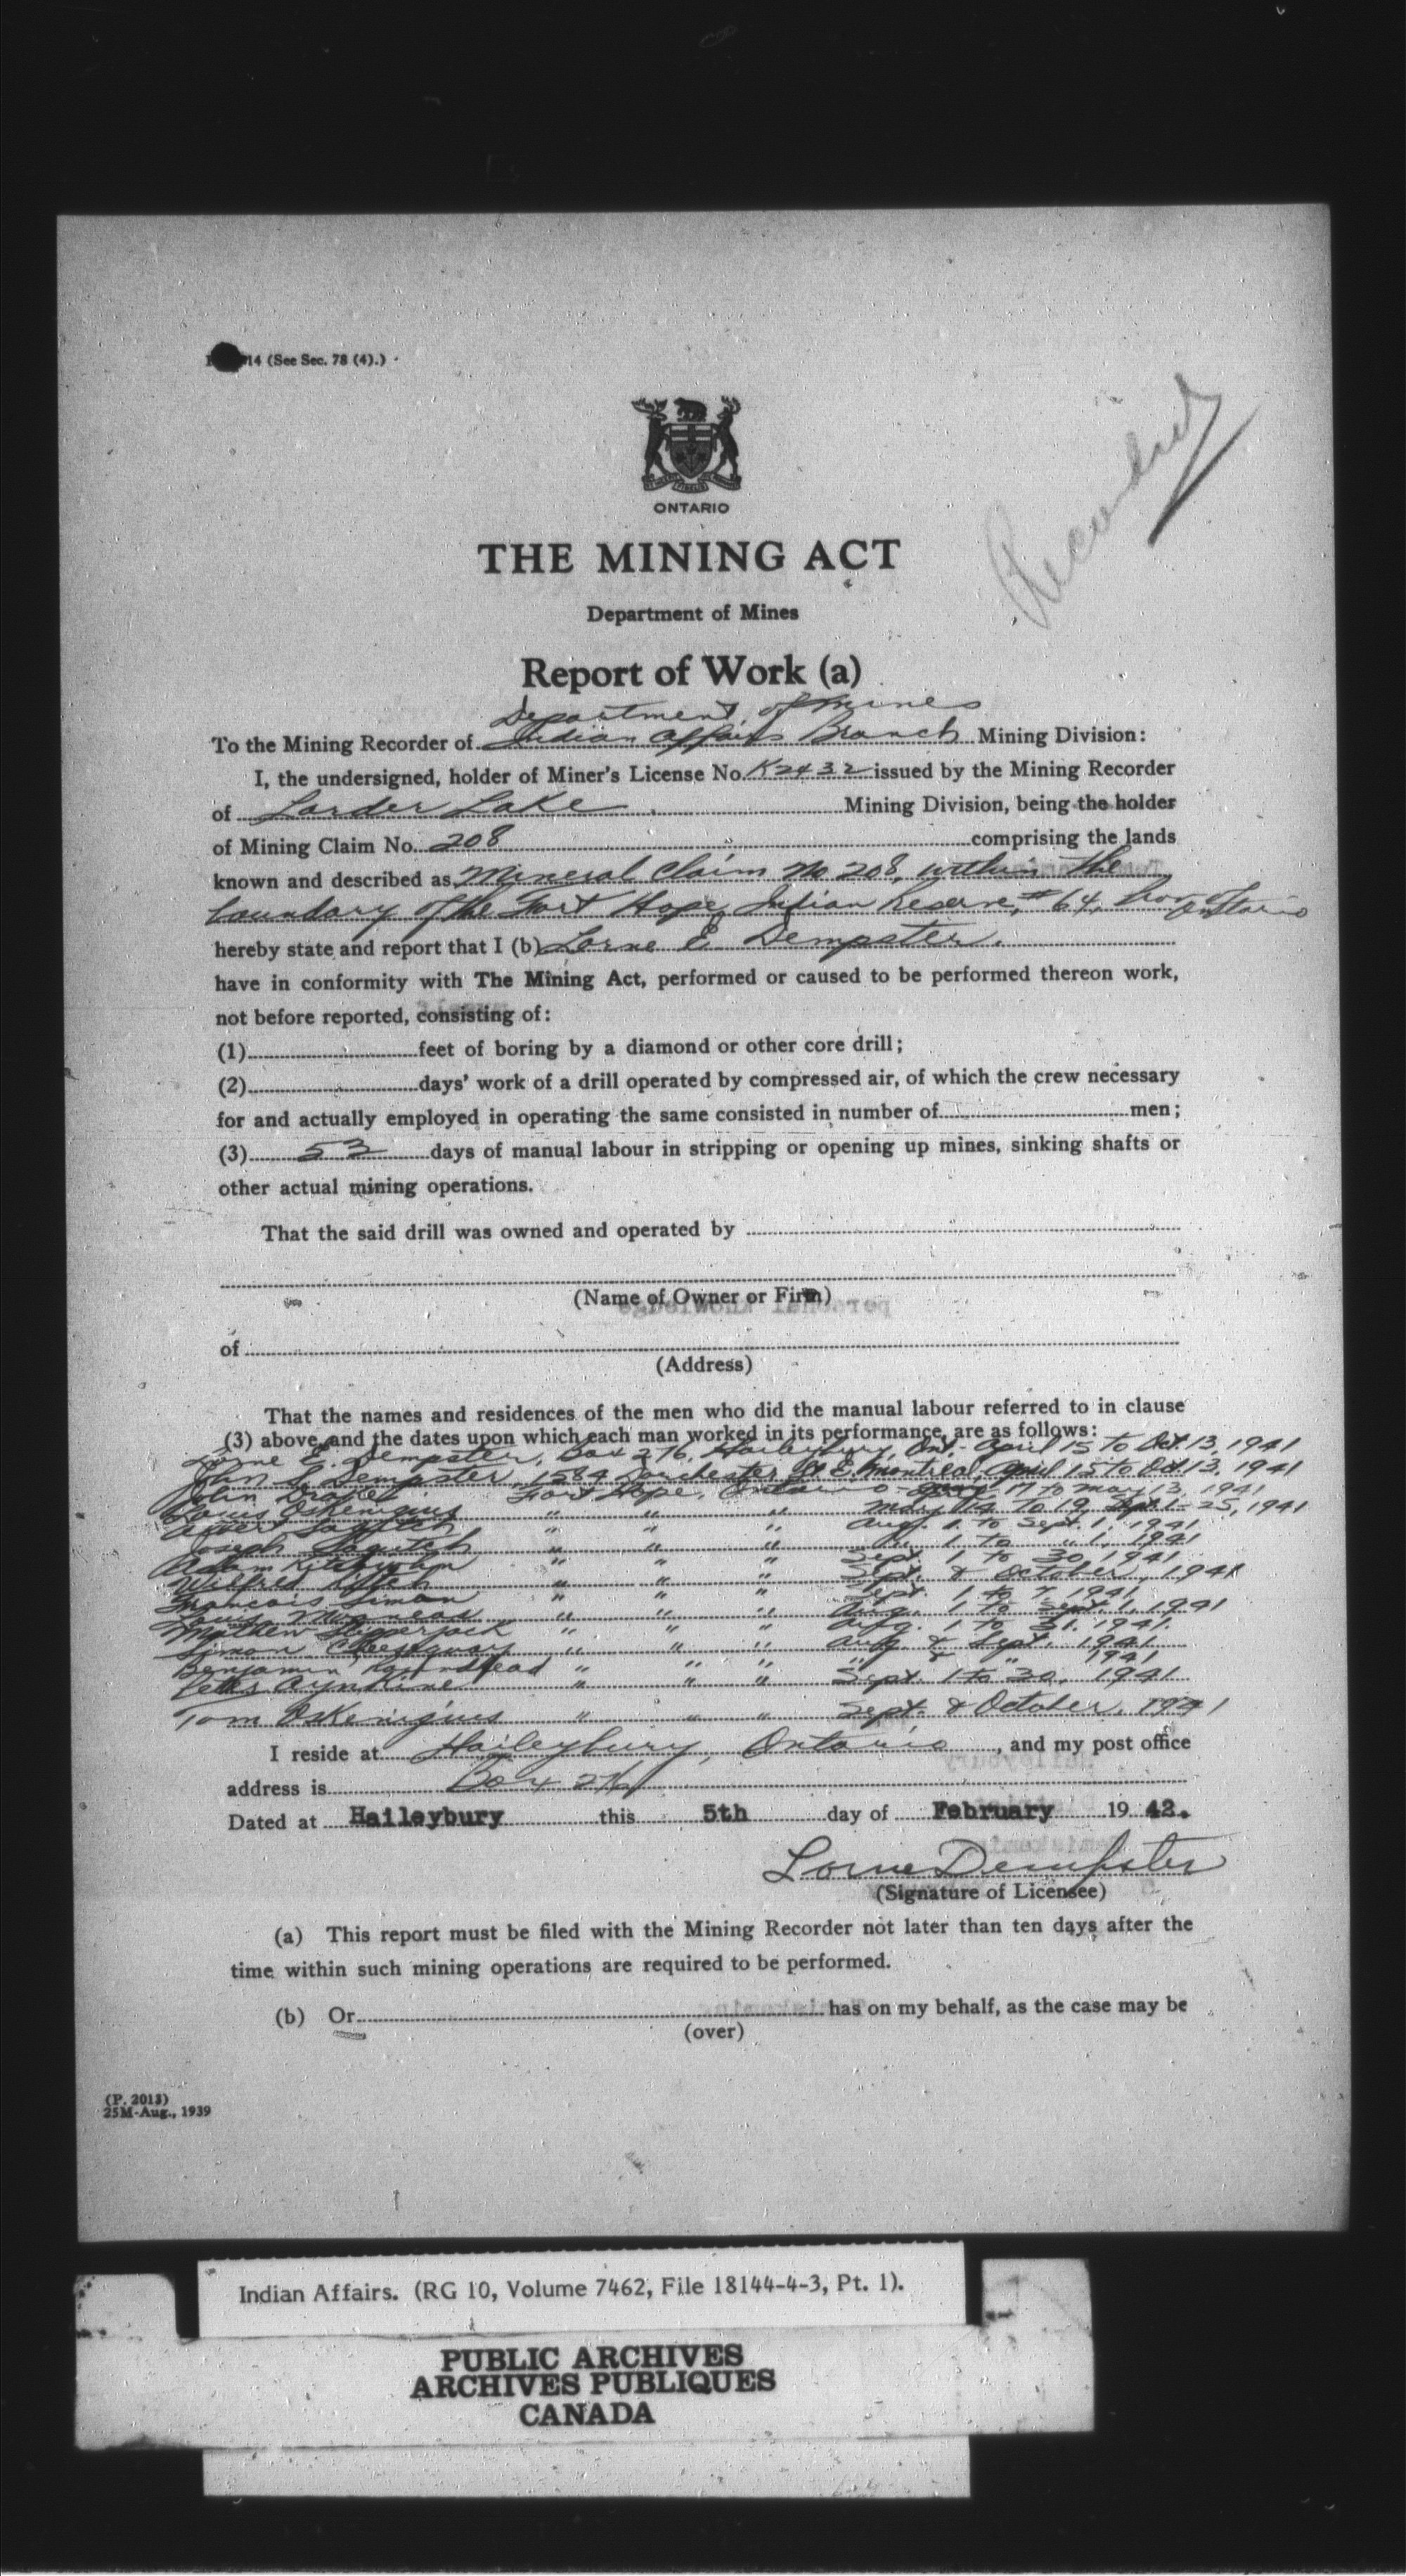 14 (See Sec. 78 (4).)
ONTARIO
THE MINING ACT
Department of Mines
Report of Work (a)
Department of Mines
To the Mining Recorder of Indian Affairs Branch Mining Division:
I, the undersigned, holder of Miner's License No. K2432 issued by the Mining Recorder
of Larder Lake Mining Division, being the holder
of Mining Claim No. 208 comprising the lands
known and described as Mineral Claim No 208, within the
boundary of the Fort Hope Indian Reserve, #64, Prov. of Ontario
hereby state and report that I (b) Lorne E Dempster.
have in conformity with The Mining Act, performed or caused to be performed thereon work,
not before reported, consisting of:
(1) feet of boring by a diamond or other core drill;
(2) days' work of a drill operated by compressed air, of which the crew necessary
for and actually employed in operating the same consisted in number of men;
(3) 53 days of manual labour in stripping or opening up mines, sinking shafts or
other actual mining operations.
That the said drill was owned and operated by
(Name of Owner or Firm)
of
(Address)
That the names and residences of the men who did the manual labour referred to in clause
(3) above, and the dates upon which each man worked in its performance, are as follows:
Lorne E. Dempster, Box 276, Haileybury, Ont. - April 15 to Oct. 13, 1941
John S. Dempster, 1584 Dorchester St E. Montreal, April 15 to Oct 13, 1941
John Fort Hope, Ontario - 17 to May 13, 1941
Louis Oskeneegus " " " May 14 to 19, Sept 1-25, 1941
Albert Sagutch " " " Aug. 1 to Sept. 1, 1941
Joseph Sagutch " " " " 1 to " 1, 1941
Adam " " " Sept. 1 to 30, 1941
Wilfred " " " Sept. & October, 1941
Francois Simon " " " Sept. 1 to 7, 1941
Louis " " " Aug. 1 to Sept. 1, 1941
Mathew Slipperjack " " " Aug. 1 to 31, 1941
Simon " " " Aug. & Sept. 1941
Benjamin Roundhead " " " " & " 1941
Peter " " " Sept. 1 to 30, 1941
Tom Oskenigus " " " Sept. & October, 1941
I reside at Haileybury, Ontario, and my post office
address is Box 276
Dated at Haileybury this 5th day of February 19 42.
Lorne Dempster
(Signature of Licensee)
(a) This report must be filed with the Mining Recorder not later than ten days after the
time within such mining operations are required to be performed.
(b) Or has on my behalf, as the case may be
(over)
(P. 2013)
25M-Aug., 1939
Recorded
Indian Affairs. (RG 10, Volume 7462, File 18144-4-3, Pt. 1).
PUBLIC ARCHIVES
ARCHIVES PUBLIQUES
CANADA